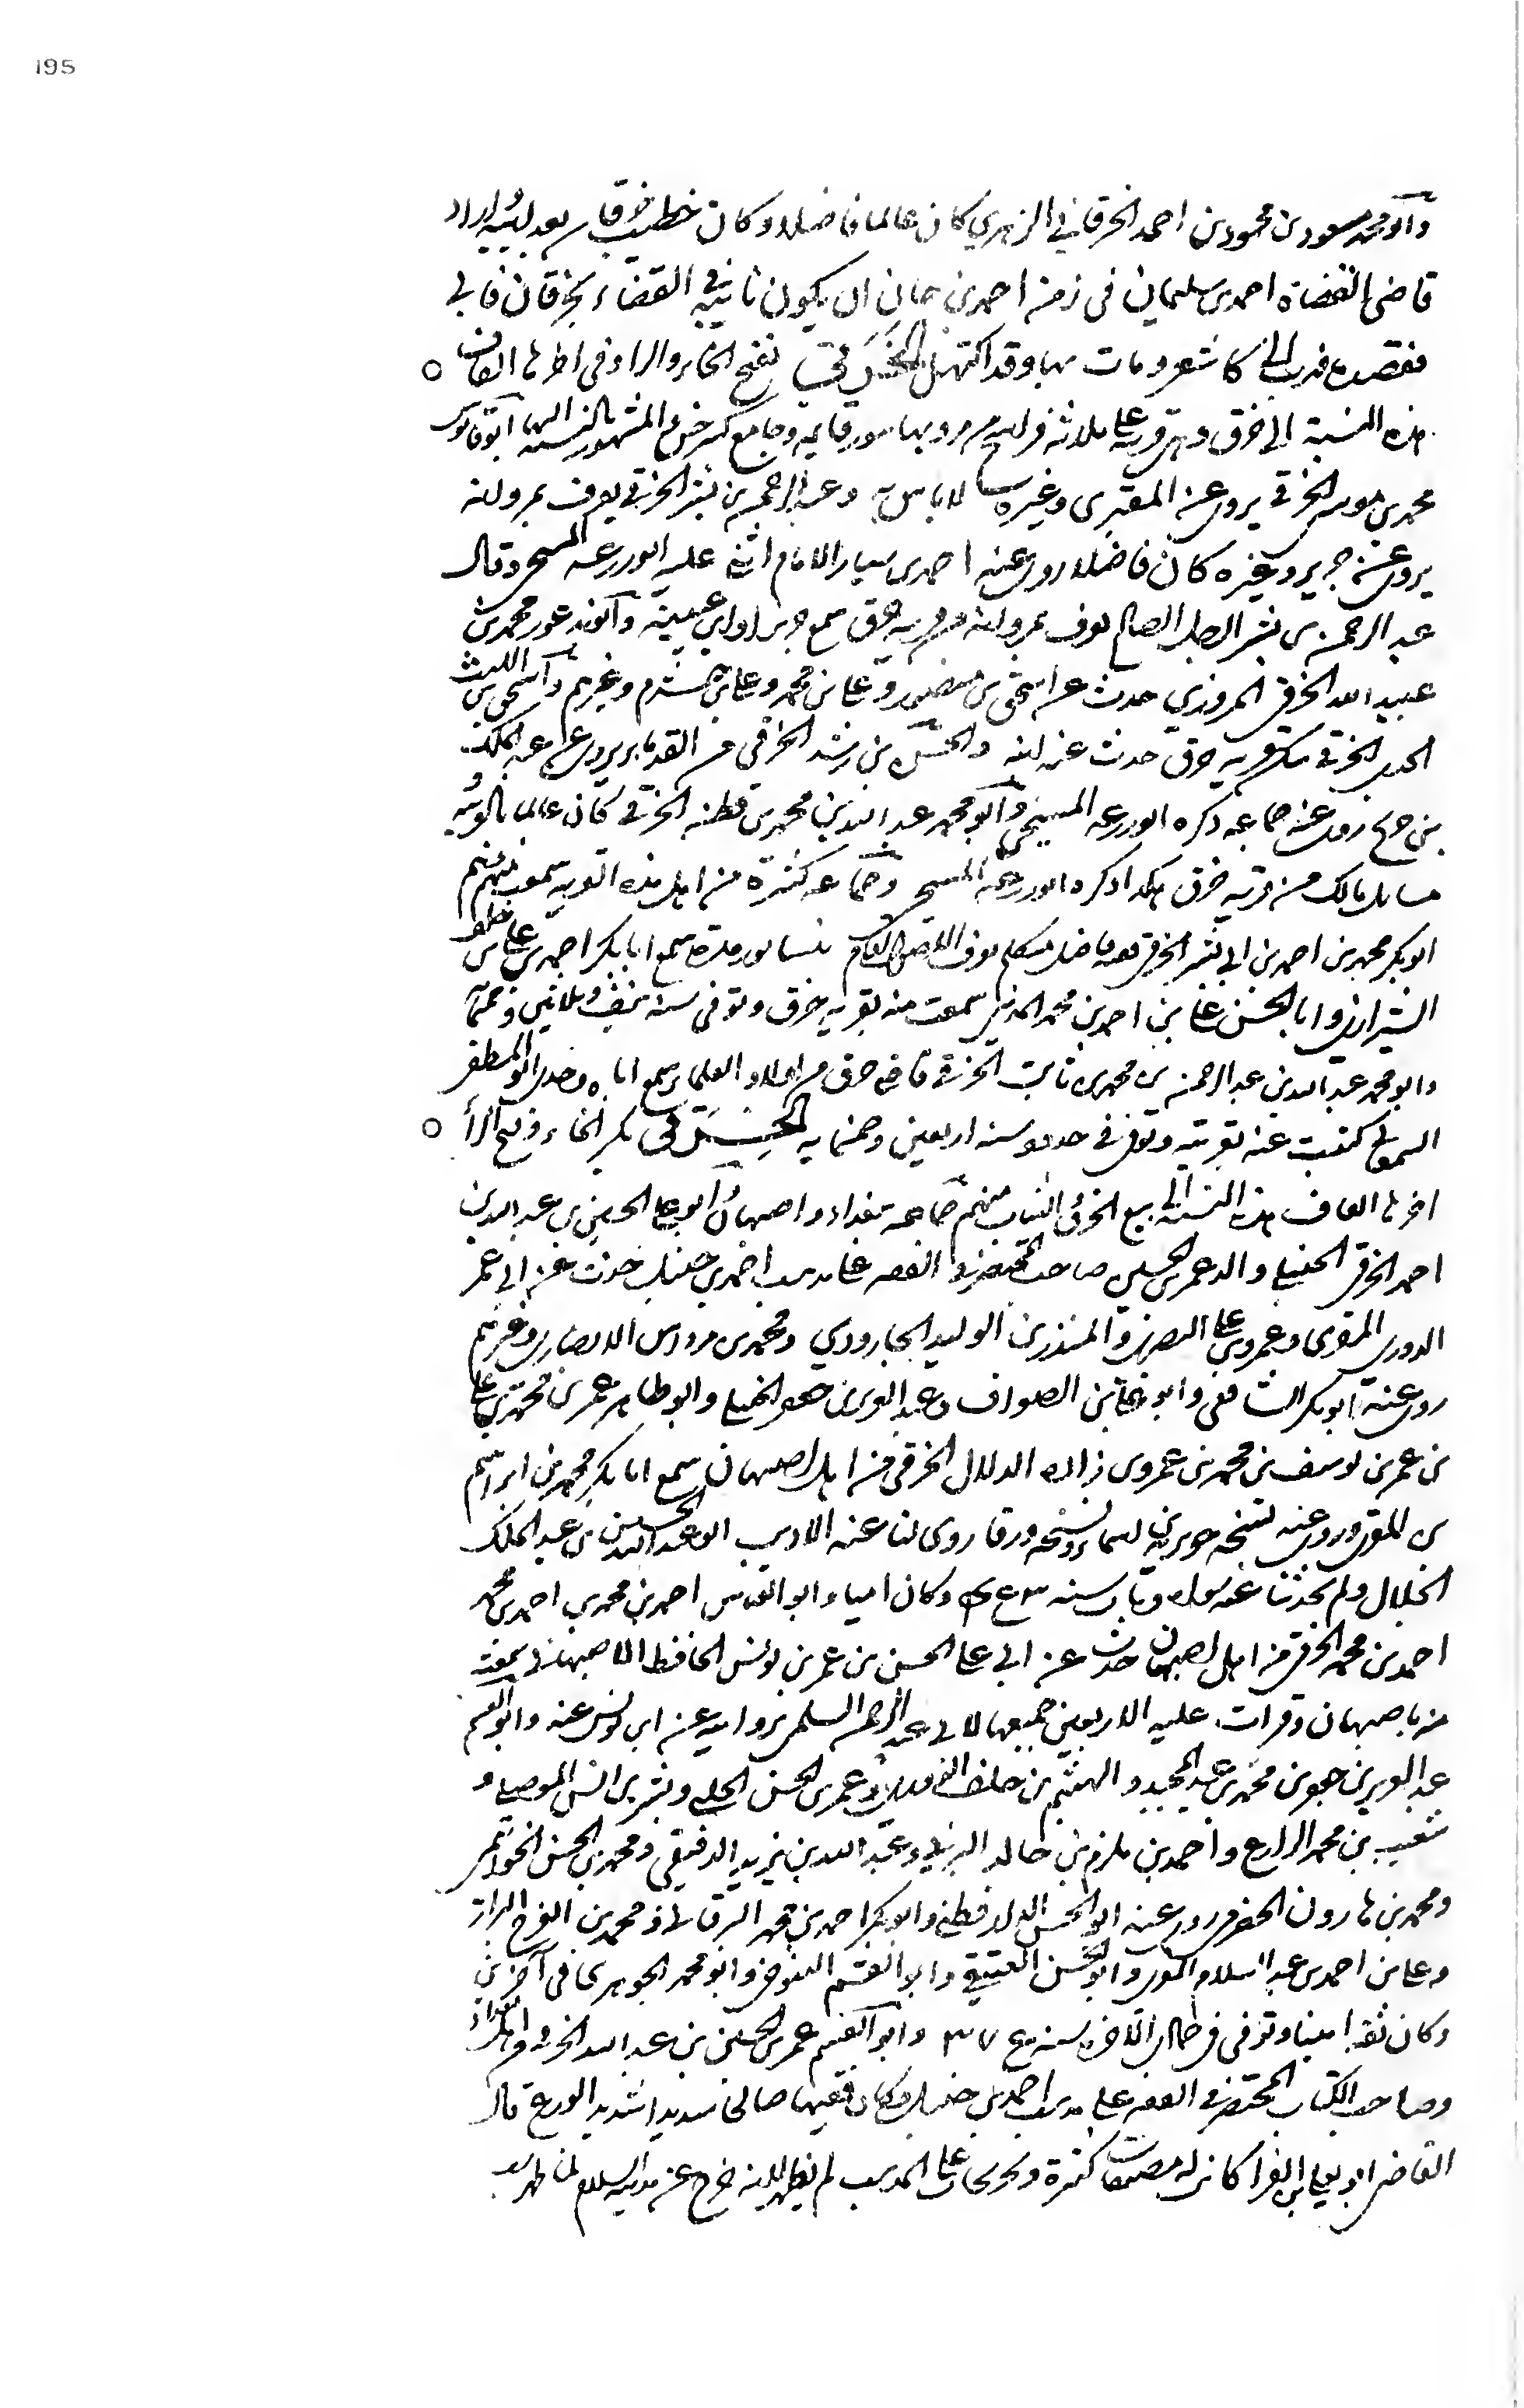 195
وابو محمد مسعود بن محمود بن احمد الخرقاني الزهري كان عالما فاضلا وكان خطيب خرقان بعد ابيه واراد
قاضي القضاة احمد بن سليمان في زمنه احمد بن ان يكون نايبه في القضاء بخرقان فابى
فقصده فهرب الى كاشغر ومات بها وقد اكتهل الخَرَقي بفتح الخاء والراء وفي اخرها القاف
هذه النسبة الى خرق وهي قرية على ثلاثة فراسخ من مرو بها سوق قايمه وجامع كبير حسن المشهور بالنسبة اليها ابو قابوس
محمد بن موسى الخرقي يروي عن المقبري وغيره لا باس به وعبد الرحمن بن بشر الخرقي يعرف بمرولنه
يروي عن جرير وغيره كان فاضلا روى عنه احمد بن سيار الامام اثنى عليه ابو زرعه السنجي وقال
عبد الرحمن بن بشر الرجل الصالح يعرف بمرولنه من قرية خرق سمع جريرا وابن عيينة وابو مذعور محمد بن
عبيد الله الخرقي المروزي حدث عن اسحق بن منصور وعلي بن محمد وعلي بن خشرم وغيرهم واسحق بن الليث
الخرقي سكن قرية خرق حدث عنه ابنه والحسن بن رشيد الخرقي من القدماء يروي عن عبد الملك
بن جريج روى عنه جماعة ذكره ابو زرعه السنجي وابو محمد عبد الله بن محمد بن قطنه الخرقي كان عالما بالعربيه
مسايل مالك من قرية خرق هكذا ذكره ابو زرعه السنجي وجماعة كثيرة من اهل هذه القرية سمعت منهم منهم
ابو بكر محمد بن احمد بن ابي بشر الخرقي فقيه فاضل متكلم يعرف الاصول اقام بنيسابور مدة سمع ابا بكر احمد بن علي بن خلف
الشيرازي وابا الحسن علي بن احمد بن محمد المديني سمعت منه بقرية خرق وتوفي سنة نيف وثلاثين وخمسماية
وابو محمد عبد الله بن عبد الرحمن بن محمد بن ثابت الخرقي قاضي خرق من اولاد العلماء سمع اباه وجدي ابو المظفر
السمعاني كتبت عنه بقريته وتوفي في حدود سنة اربعين وخمسماية الخِرَقي بكسر الخاء وفتح الراء
اخرها القاف هذه النسبة الى بيع الخرق والثياب منهم جماعة ببغداد واصبهان ابو علي الحسين بن عبد الله بن
احمد الخرقي الحنبلي والد عمر بن الحسين صاحب المختصر في الفقه على مذهب احمد بن حنبل حدث عن ابي عمر
الدوري المقري وعمرو بن علي البصري والمنذر بن الوليد الجارودي ومحمد بن مرداس الانصاري وغيرهم
روى عنه ابو بكر الشافعي وابو علي بن الصواف وعبد العزيز بن جعفر الحنبلي وابو طاهر عمر بن محمد بن علي
بن عمر بن يوسف بن محمد بن عمرو بن زاذه الدلال الخرقي من اهل اصبهان سمع ابا بكر محمد بن ابراهيم
بن المقري وروى عنه نسخة جويرية بن اسماء ونسخة ورقا روى لنا عنه الاديب ابو عبد الله الحسين بن عبد الملك
الخلال ولم يحدثنا عنه سواه ومات سنه وكان اميا وابو القاسم احمد بن محمد بن احمد بن محمد
احمد بن محمد الخرقي من اهل اصبهان حدث عن ابي علي الحسن بن عمر بن يونس الحافظ الاصبهاني سمعت
منه باصبهان وقرات عليه الاربعين جميعها لابي عبد الرحمن السلمي بروايته عن ابن يونس عنه وابو القسم
عبد العزيز بن جعفر بن محمد بن عبد الحميد والهيثم بن خلف الدوري وعمر بن الحسن الحلبي وبشر بن انس الموصلي و
شعيب بن محمد الذارع واحمد بن ملزم بن خالد البرتي وعبد الله بن يزيد الدقيقي ومحمد بن الحسن الخواتيمي
ومحمد بن هارون الحضرمي روى عنه ابو الحسن الدارقطني وابو بكر احمد بن محمد البرقاني ومحمد بن الفرج البزاز
وعلي بن احمد بن عبد السلام وابو الحسن العتيقي وابو القسم التنوخي وابو محمد الجوهري في آخرين
وكان ثقة امينا وتوفي في جمادى الاخره سنه وابو القسم عمر بن الحسين بن عبد الله الخرقي من اهل بغداد
وصاحب الكتاب المختصر في الفقه على مذهب احمد بن حنبل وكان فقيها صالحا سديدا شديد الورع قال
القاضي ابو يعلى ابن الفرا كانت له مصنفات كثيرة وتخريجات على المذهب لم تظهر لانه خرج عن مدينة السلام لما ظهر سب